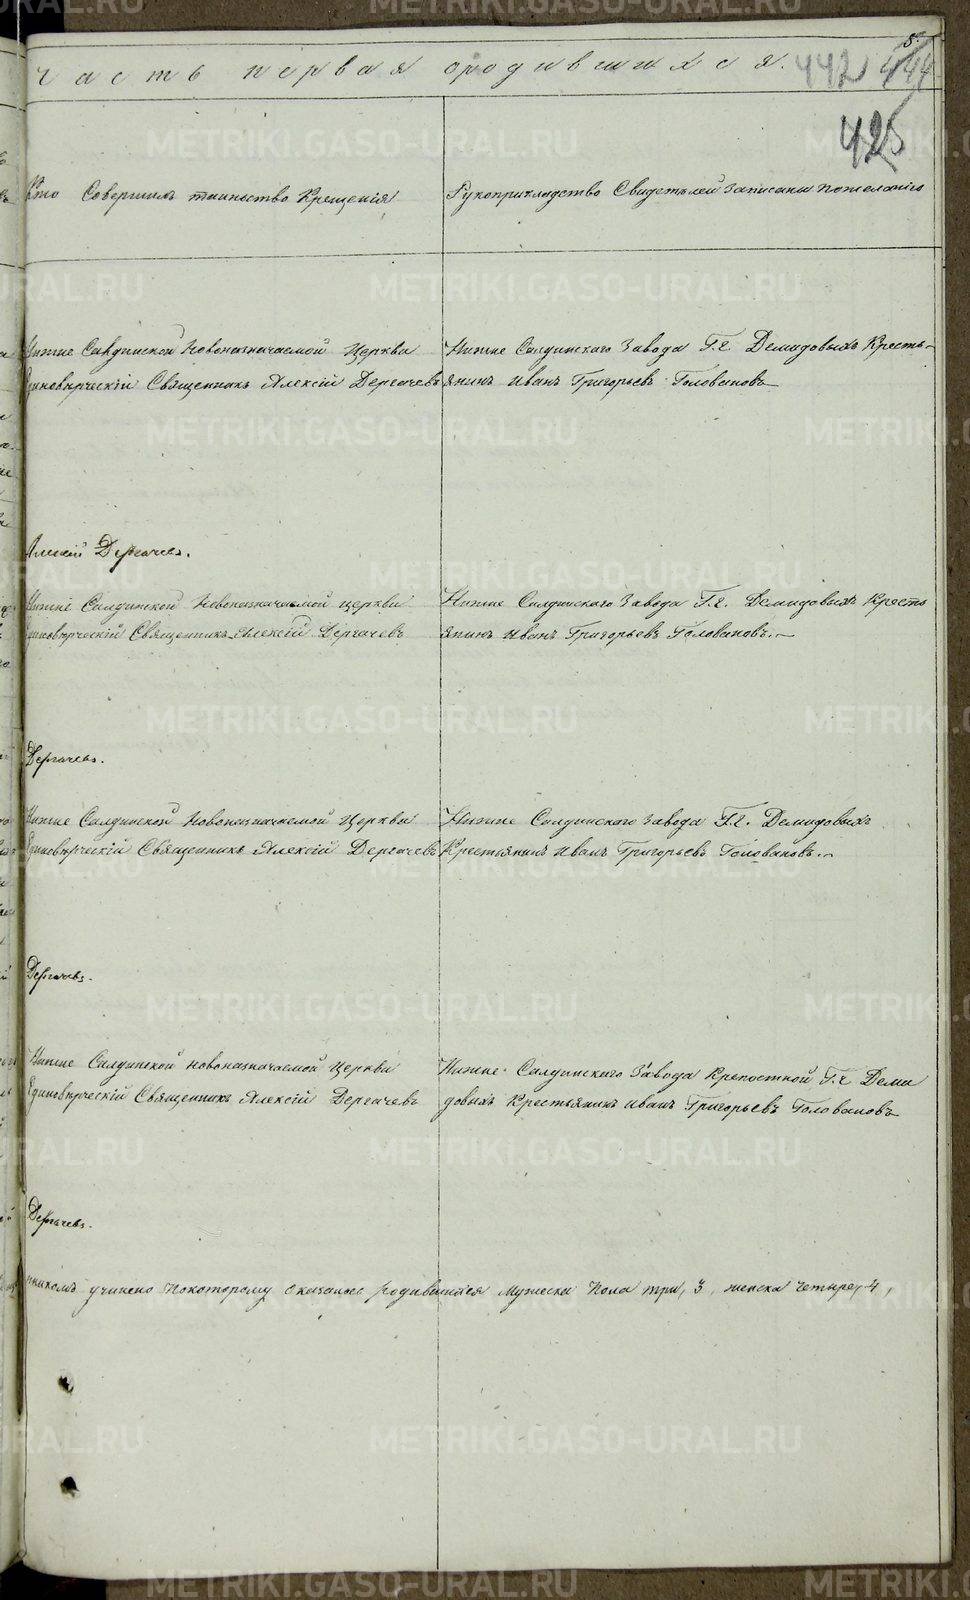 5.
часть первая ородившихся. 442 444
425
Кто Совершилъ таинство Крещенія
Рукоприкладство Свидетѣлей записаны пожеланію
Нижне Салдинской Новоназначаемой Церкви
Единовѣрческій Священникъ Алексій Дергачевъ
Нижне Салдинскаго Завода Г.г. Демидовыхъ Кресть-
янинъ Иванъ Григорьевъ Головановъ
Алексій Дергачевъ.
Нижне Салдинской Новоназначаемой церкви
Единовѣрческій Священникъ Алексій Дергачевъ
Нижне Салдинскаго Завода Г.г. Демидовыхъ Кресть
янинъ Иванъ Григорьевъ Головановъ.
Дергачевъ.
Нижне Салдинской Новоназначаемой Церкви
Единовѣрческій Священникъ Алексій Дергачевъ
Нижне Салдинскаго Завода Г.г. Демидовыхъ
Крестьянинъ Иванъ Григорьевъ Головановъ.
Дергачевъ.
Нижне Салдинской новоназначаемой Церкви
Единовѣрческій Священникъ Алексій Дергачевъ
Нижне Салдинскаго Завода Крепостной Г.г Деми
довыхъ Крестьянинъ Иванъ Григорьевъ Головановъ
Дергачевъ.
учинено покоторому оказалось родившихся мужеска пола три, 3, женска четыре, 4,
METRIKI.GASO-URAL.RU